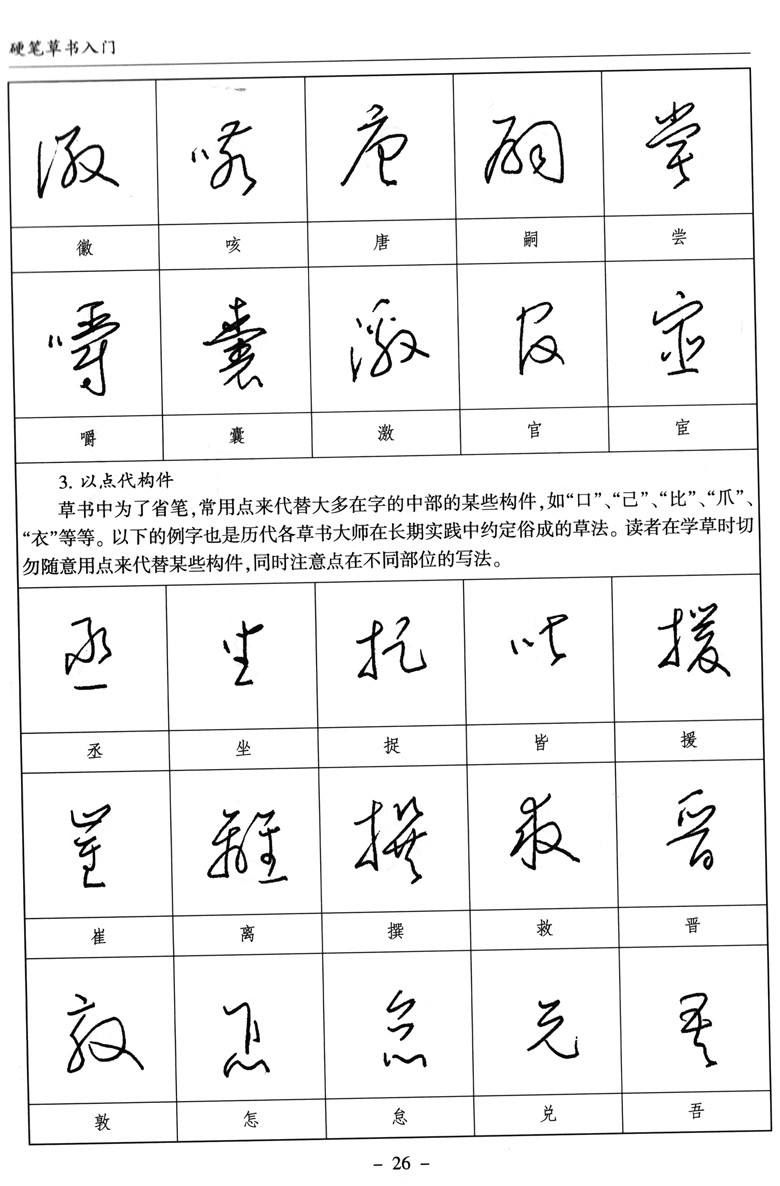 硬笔草书入门
徽 咳 唐 嗣 尝
徽 咳 唐 嗣 尝
嚼 囊 激 官 宦
嚼 囊 激 官 宦
3. 以点代构件
草书中为了省笔，常用点来代替大多在字的中部的某些构件，如“口”、“己”、“比”、“爪”、
“衣”等等。以下的例字也是历代各草书大师在长期实践中约定俗成的草法。读者在学草时切
勿随意用点来代替某些构件，同时注意点在不同部位的写法。
丞 坐 捉 皆 援
丞 坐 捉 皆 援
崔 离 撰 救 晋
崔 离 撰 救 晋
敦 怎 怠 兑 吾
敦 怎 怠 兑 吾
- 26 -